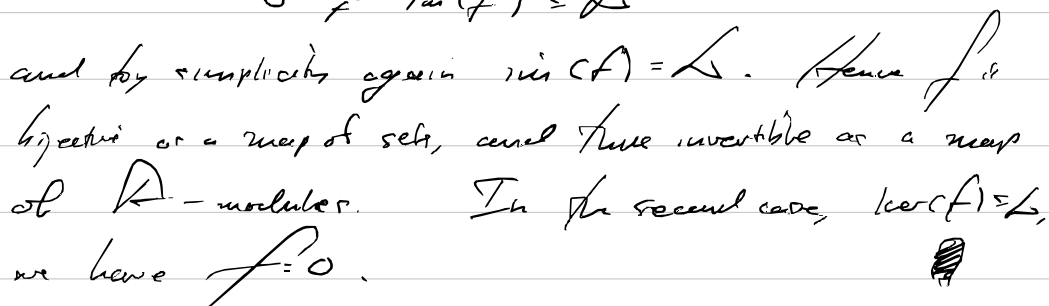 and by simplicity again im(f) = L. Hence f is
bijective as a map of sets, and thus invertible as a map
of A-modules. In the second case, ker(f) = L,
we have f = 0.